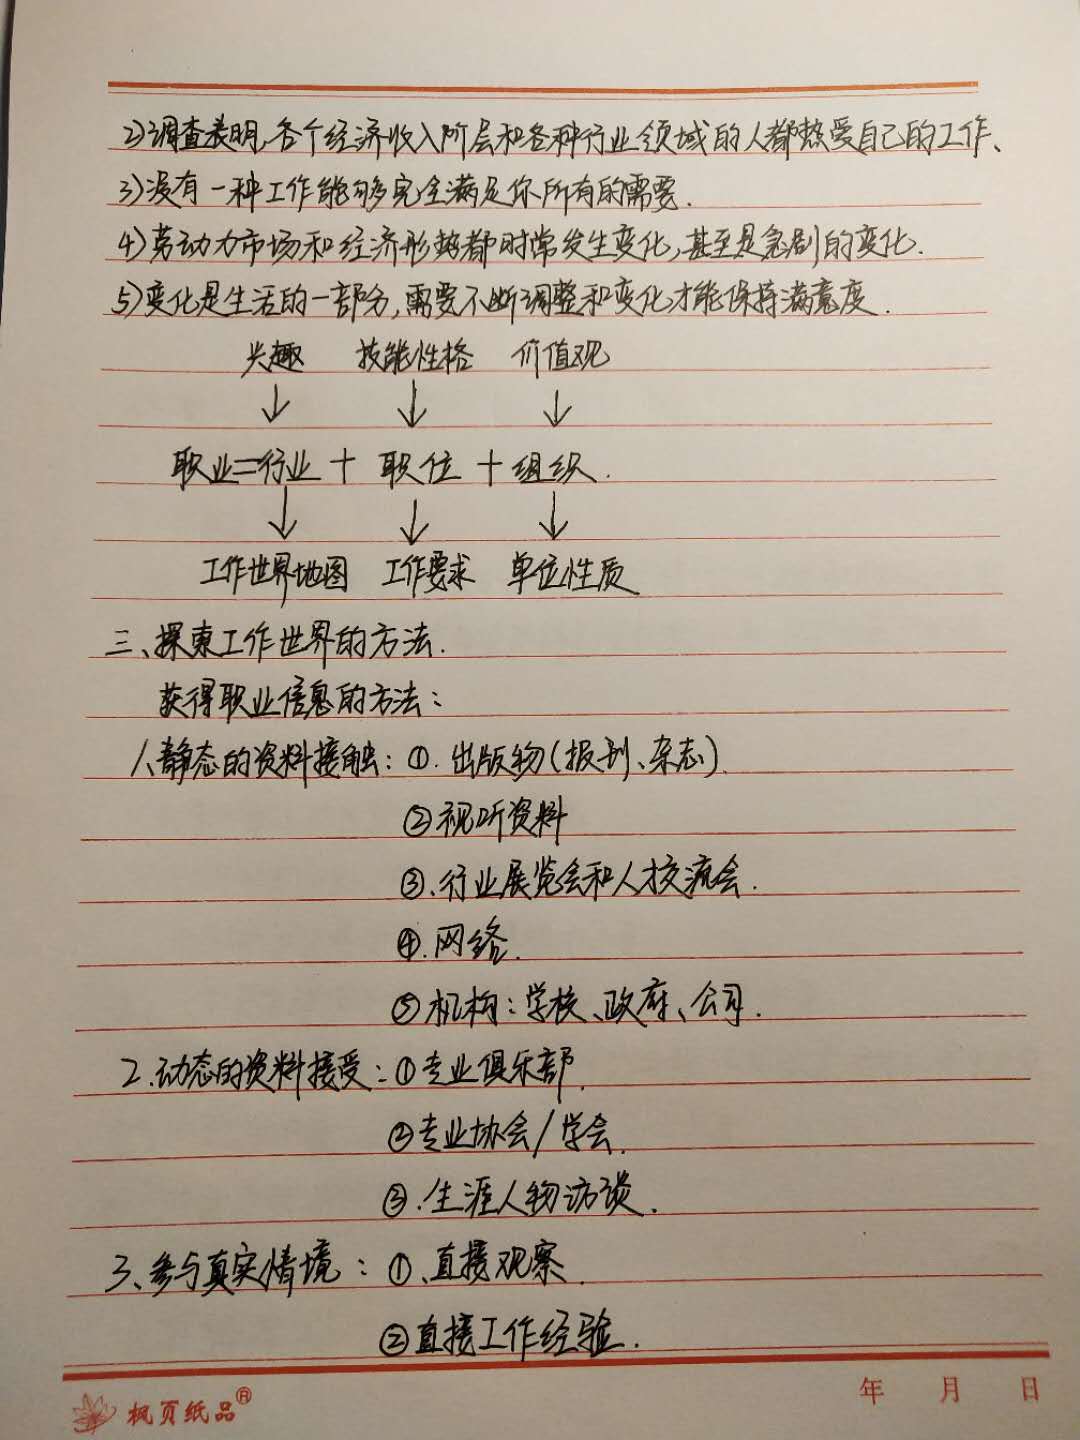 2)调查表明,各个经济收入阶层和各种行业领域的人都热爱自己的工作、
3)没有一种工作能够完全满足你所有的需要.
4)劳动力市场和经济形势都时常发生变化,甚至是急剧的变化.
5)变化是生活的一部分,需要不断调整和变化才能保持满意度.
兴趣 技能性格 价值观
↓ ↓ ↓
职业=行业 + 职位 + 组织.
↓ ↓ ↓
工作世界地图 工作要求 单位性质
三、探索工作世界的方法.
获得职业信息的方法:
1、静态的资料接触:①.出版物(报刊、杂志).
②视听资料
③.行业展览会和人才交流会.
④.网络.
⑤机构:学校、政府、公司.
2.动态的资料接受:①专业俱乐部.
②专业协会/学会.
③.生涯人物访谈.
3、参与真实情境:①、直接观察.
②直接工作经验.
枫页纸品® 年 月 日